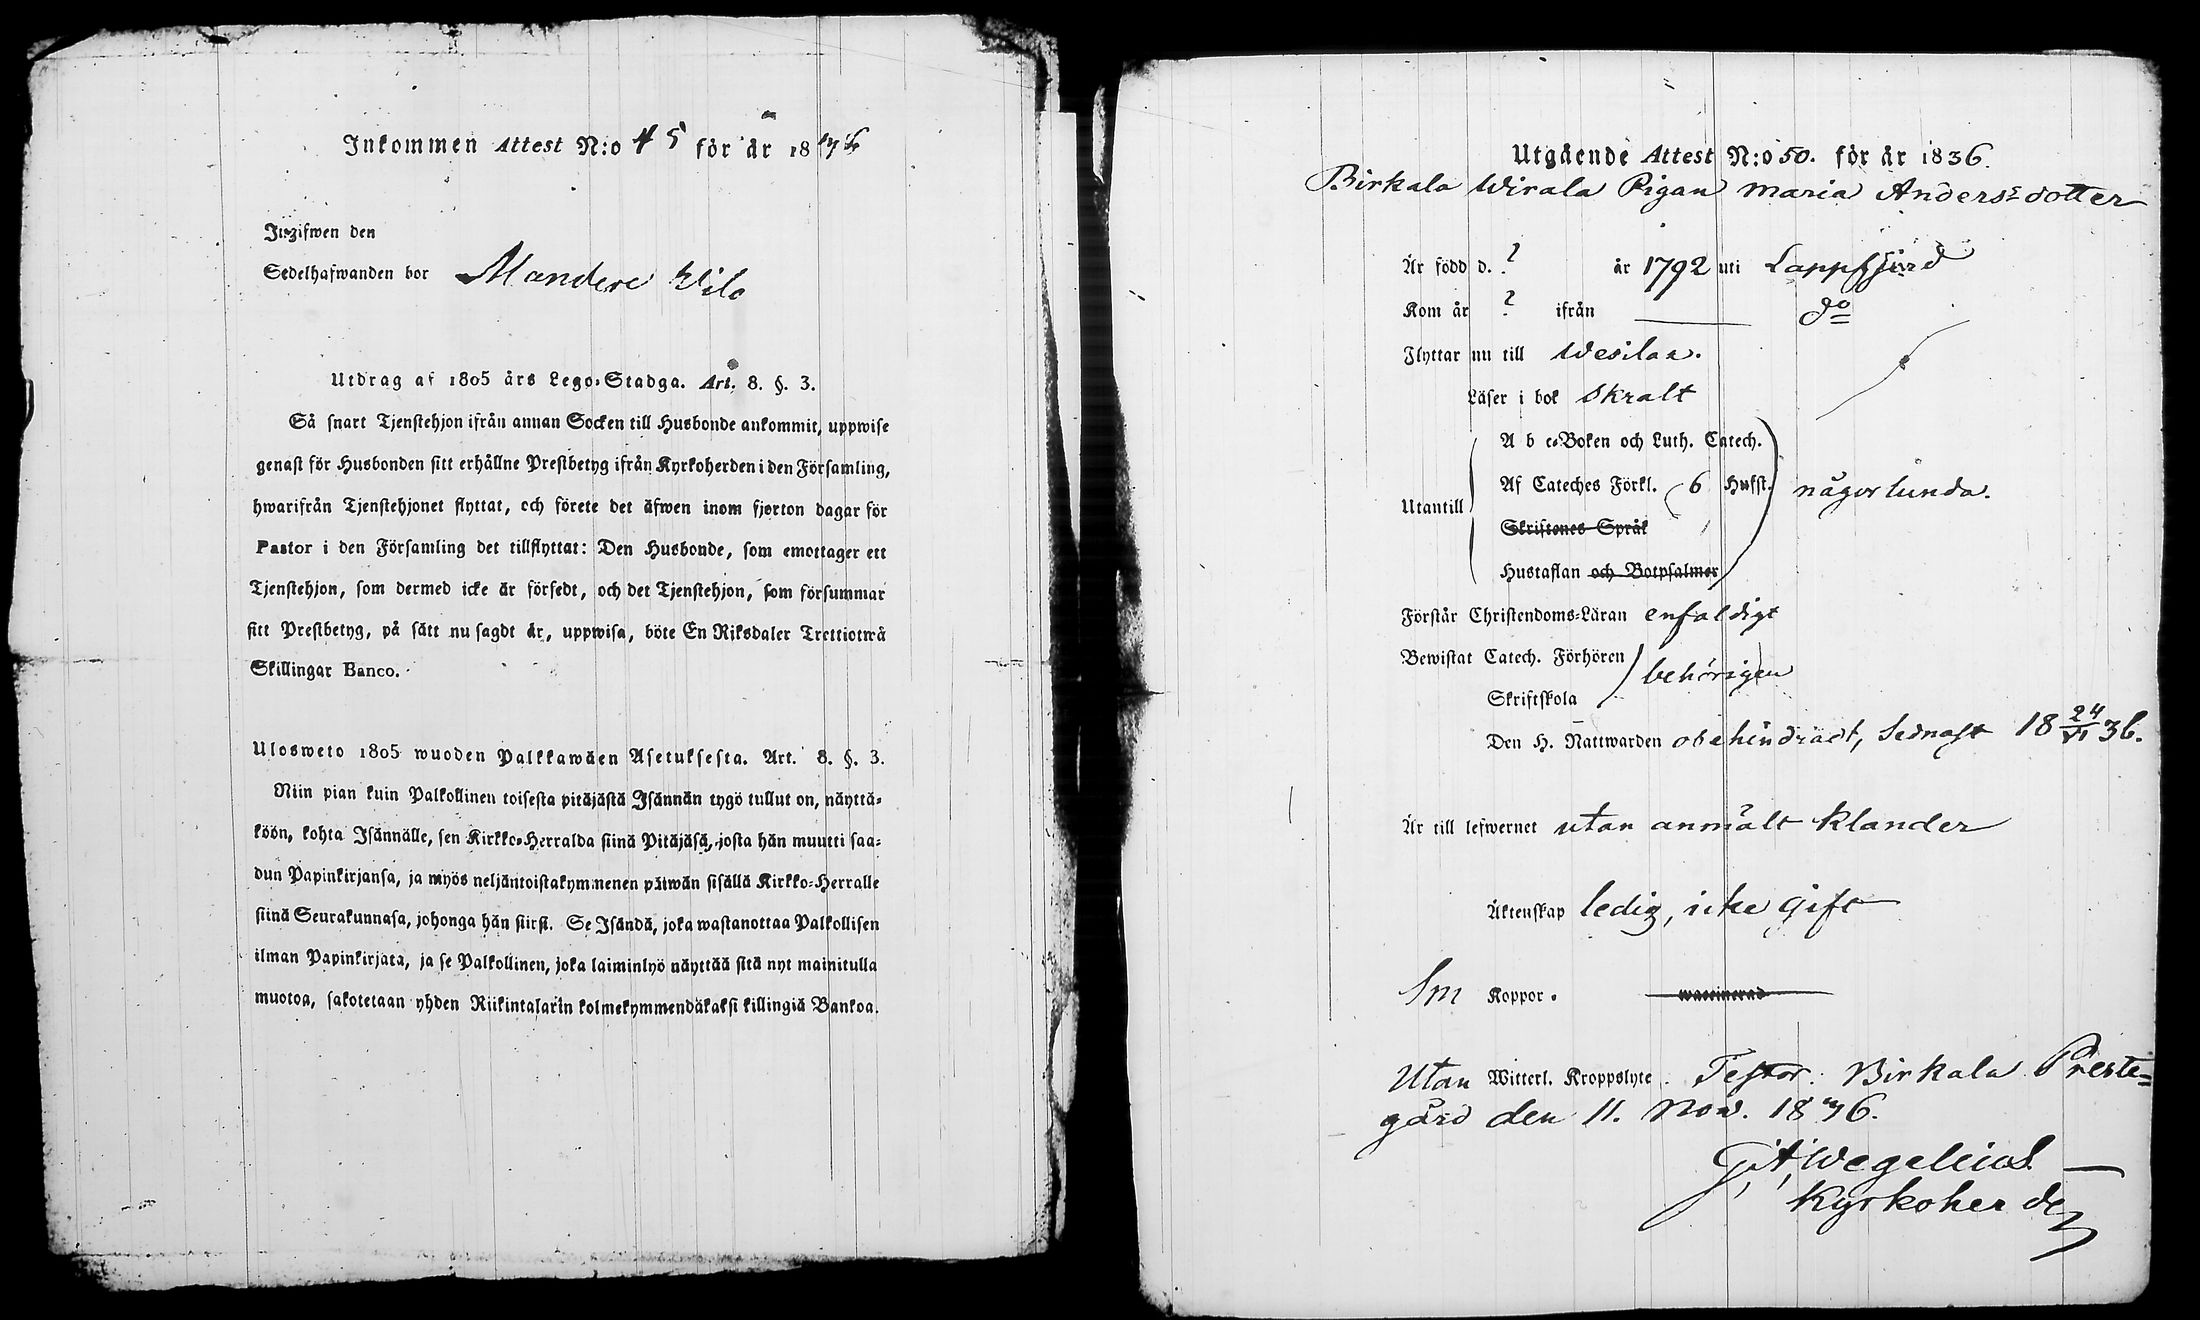 Inkommen Attest N:o 45 för år 1836
Ingifwen den
Sedelhafwanden bor Mandere Wilo
Utdrag af 1805 års Lego-Stadga. Art. 8. §. 3.
Så snart Tjenstehjon ifrån annan Socken till Husbonde ankommit, uppwise
genast för Husbonden sitt erhållne Prestbetyg ifrån Kyrkoherden i den Församling,
hwarifrån Tjenstehjonet flyttat, och förete det äfwen inom fjorton dagar för
Pastor i den Församling det tillflyttat: Den Husbonde, som emottager ett
Tjenstehjon, som dermed icke är försedt, och det Tjenstehjon, som försummar
sitt Prestbetyg, på sätt nu sagdt är, uppwisa, böte En Riksdaler Trettiotwå
Skillingar Banco.
Ulosweto 1805 wuoden Palkkawäen Asetuksesta. Art. 8. §. 3.
Niin pian kuin Palkollinen toisesta pitäjästä Isännän tygö tullut on, näyttä-
köön, kohta Isännälle, sen Kirkko-Herralda siinä Pitäjäsä, josta hän muutti saa-
dun Papinkirjansa, ja myös neljäntoistakymmenen päiwän sisällä Kirkko-Herralle
siinä Seurakunnasa, johonga hän siirsi. Se Isändä, joka wastanottaa Palkollisen
ilman Papinkirjata, ja se Palkollinen, joka laiminlyö näyttää sitä nyt mainitulla
muotoa, sakotetaan yhden Riikintalarin kolmekymmendäkaksi killingiä Bankoa.
Utgående Attest N:o 50. för år 1836.
Birkala Wirala Pigan Maria Andersdotter
Är född d. ? år 1792 uti Lappfjärd
Kom år ? ifrån do
Flyttar nu till Wesilax.
Läser i bok skralt
A b c-Boken och Luth. Catech.
Af Cateches Förkl. 6 Hufst. någorlunda.
Utantill
Skriftenes Språk
Hustaflan och Botpsalmer
Förstår Christendoms-Läran enfaldigt
Bewistat Catech. Förhören behörigen
Skriftskola
Den H. Nattwarden obehindradt, sednast 18 24/VI 36.
Är till lefwernet utan anmält klander
Äktenskap ledig, icke gift
Koppor. waccinerad
Utan Witterl. Kroppslyte. Testor: Birkala Preste-
gård den 11. Nov. 1836.
G. A. Wegelius
Kyrkoherde